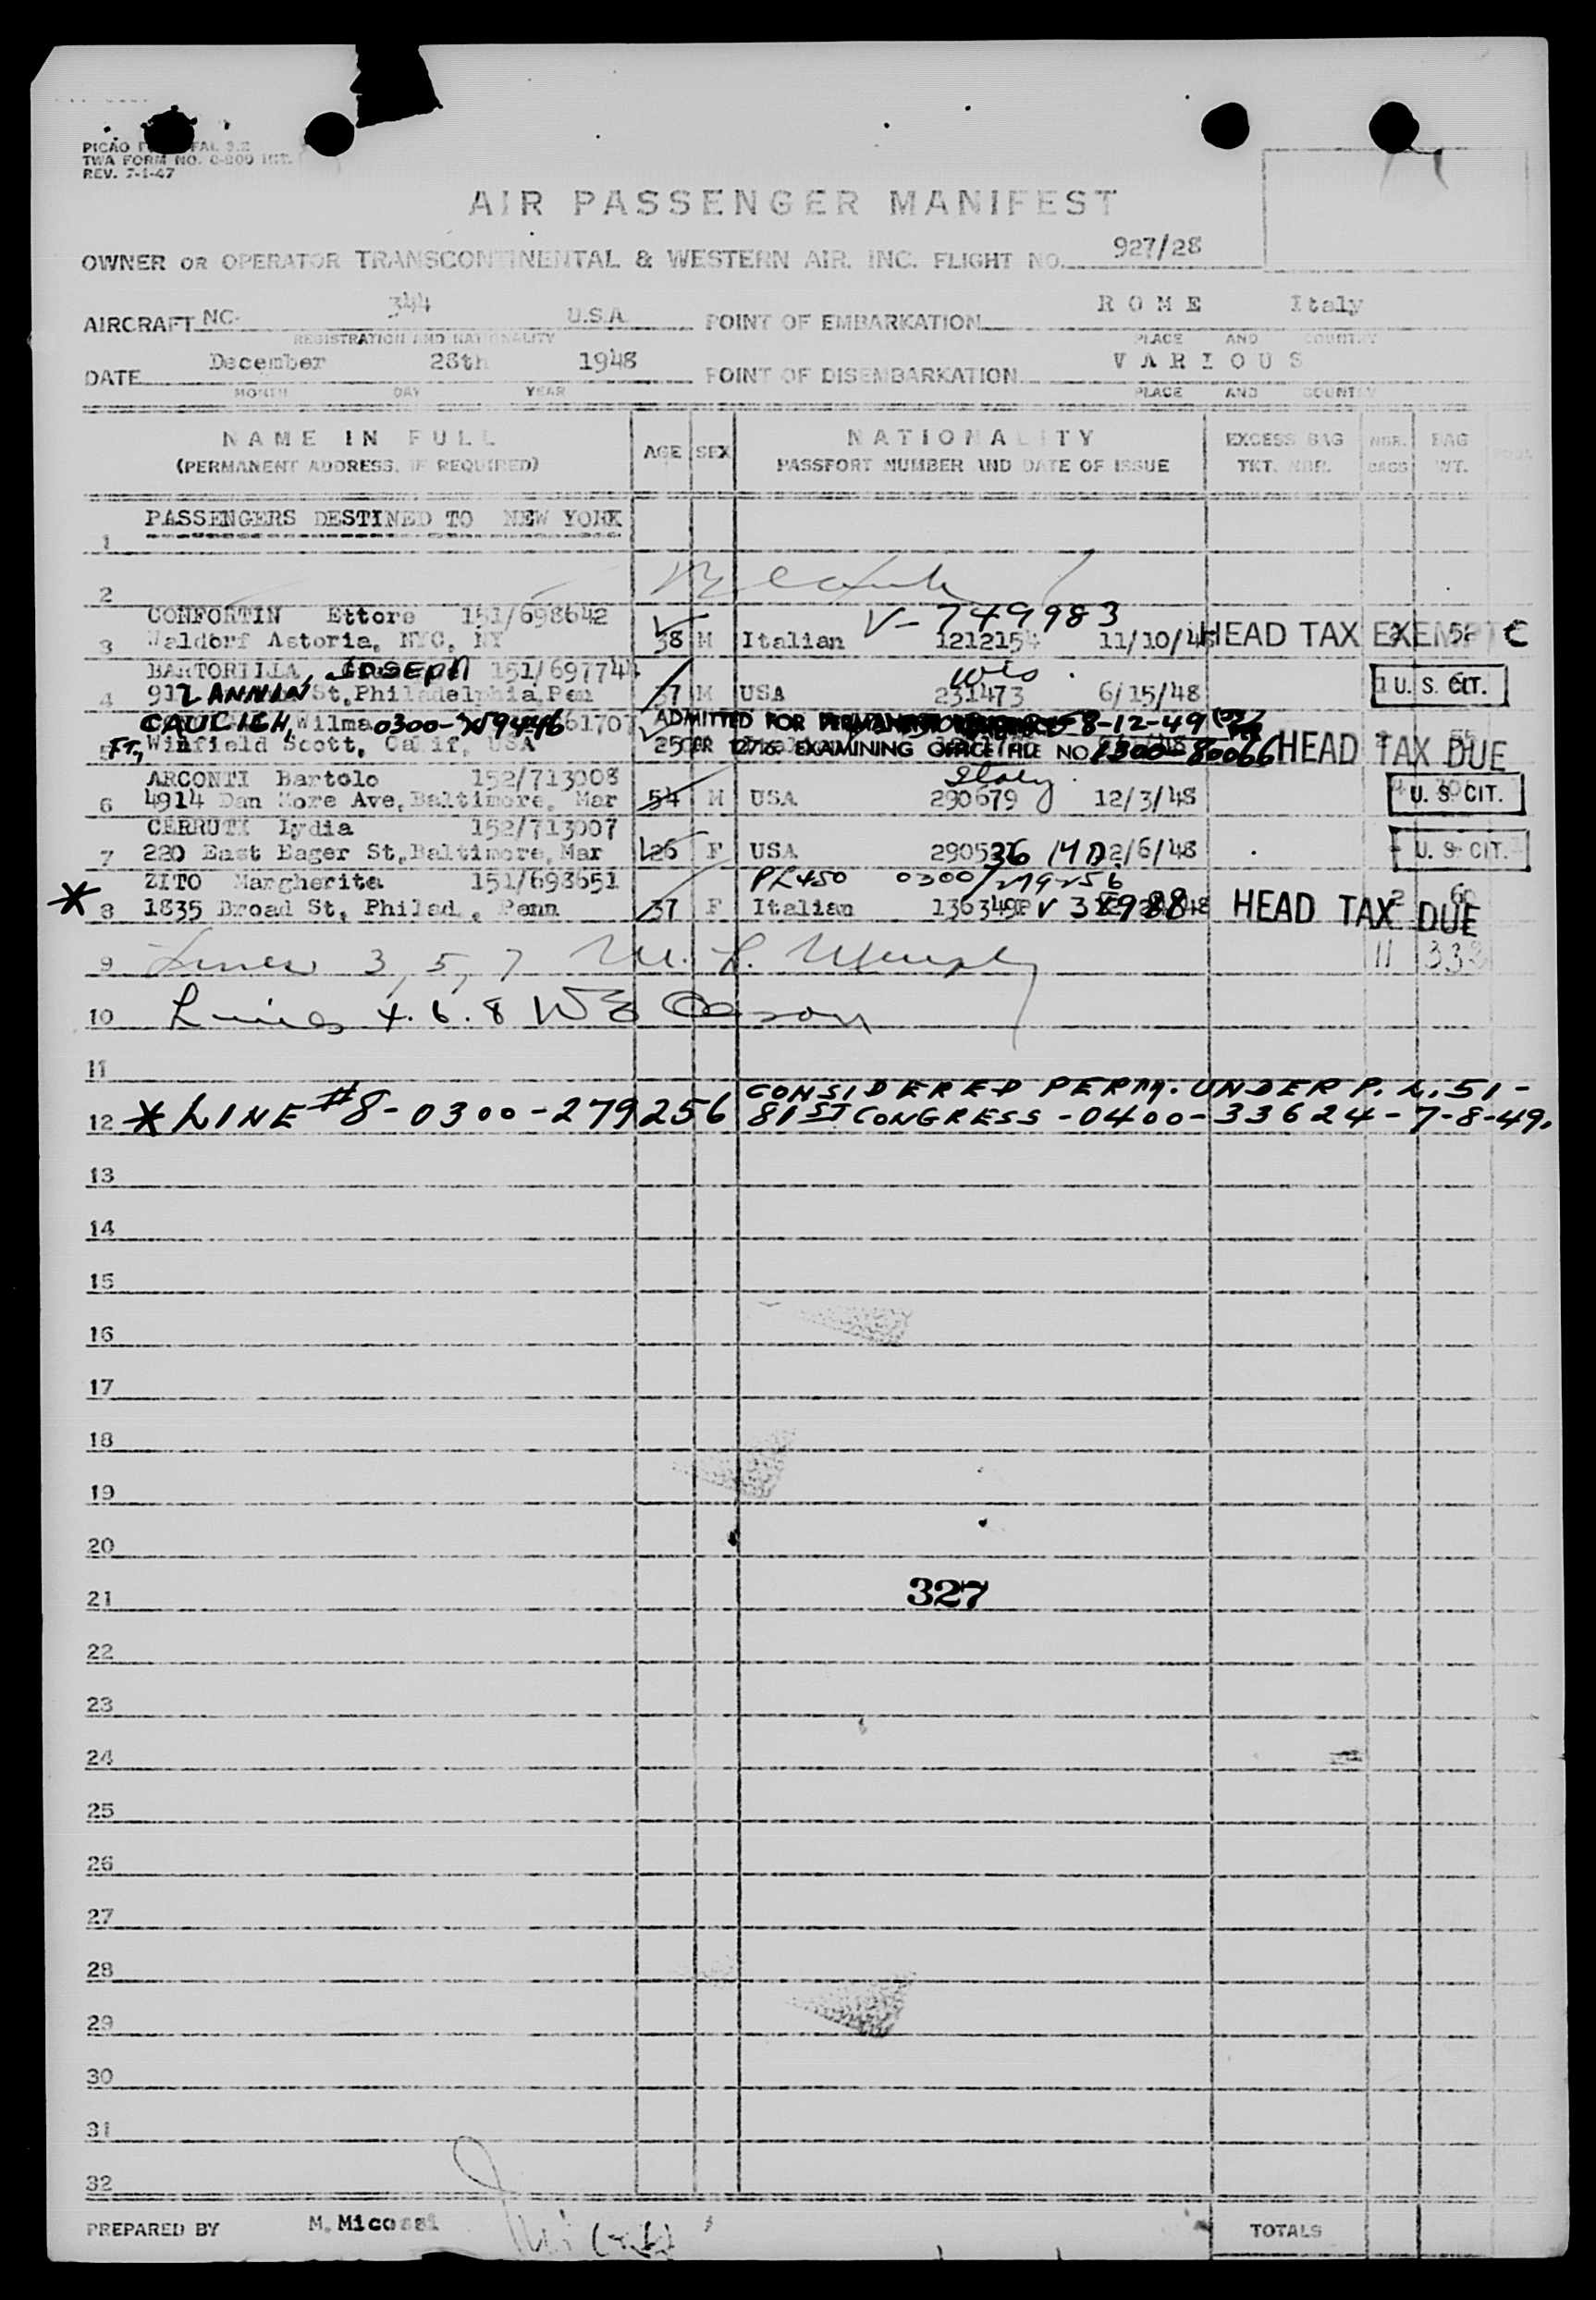 PICAO FAL 3.2
TWA FORM NO. C-200 INT.
REV. 7-1-47
AIR PASSENGER MANIFEST
OWNER OR OPERATOR TRANSCONTINENTAL & WESTERN AIR. INC. FLIGHT NO. 927/28
AIRCRAFT NC- 344 U.S.A. POINT OF EMBARKATION R O M E Italy
REGISTRATION AND NATIONALITY PLACE AND COUNTRY
DATE December 28th 1948 POINT OF DISEMBARKATION V A R I O U S
MONTH DAY YEAR PLACE AND COUNTRY
NAME IN FULL AGE SEX NATIONALITY EXCESS BAG NBR. BAG
(PERMANENT ADDRESS, IF REQUIRED) PASSPORT NUMBER AND DATE OF ISSUE TKT. NBR. BAGS WT.
PASSENGERS DESTINED TO NEW YORK
1
2
CONFORTIN Ettore 151/698642 V-749983
3 Waldorf Astoria, NYC, NY 38 M Italian 1212154 11/10/48 HEAD TAX EXEMPT C
BARTORILLA, JOSEPH 151/697744
4 912 ANNIN St. Philadelphia Pen 37 M USA 231473 6/15/48 U. S. CIT.
CAUCIGH, Wilma 0300- 61707 ADMITTED FOR 8-12-49
5 FT., Winfield Scott, Calif, USA 25 EXAMINING OFFICE FILE NO. 1300-80066 HEAD TAX DUE
ARCONTI Bartolo 152/713008 Italy
6 4914 Dan More Ave, Baltimore, Mar 54 M USA 290679 12/3/48 U. S. CIT.
CERRUTI Lydia 152/713007
7 220 East Eager St, Baltimore, Mar 26 F USA 290536 12/6/48 U. S. CIT.
ZITO Margherita 151/698651 PL 450 0300/279256
* 8 1835 Broad St, Philad., Penn 37 F Italian 136349P V HEAD TAX DUE
9 Lines 3, 5, 7 M. L. Murphy 11 338
10 Lines 4. 6. 8
11
CONSIDERED PERM. UNDER P. L. 51-
12 * LINE #8-0300-279256 81ST CONGRESS -0400-33624-7-8-49.
13
14
15
16
17
18
19
20
327
21
22
23
24
25
26
27
28
29
30
31
32
PREPARED BY M. Micossi TOTALS